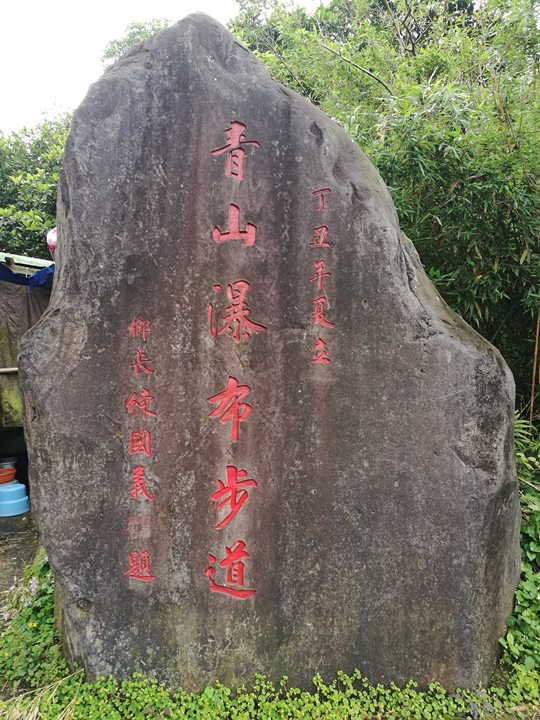 丁丑年夏立
青山瀑布步道
鄉長練國義題